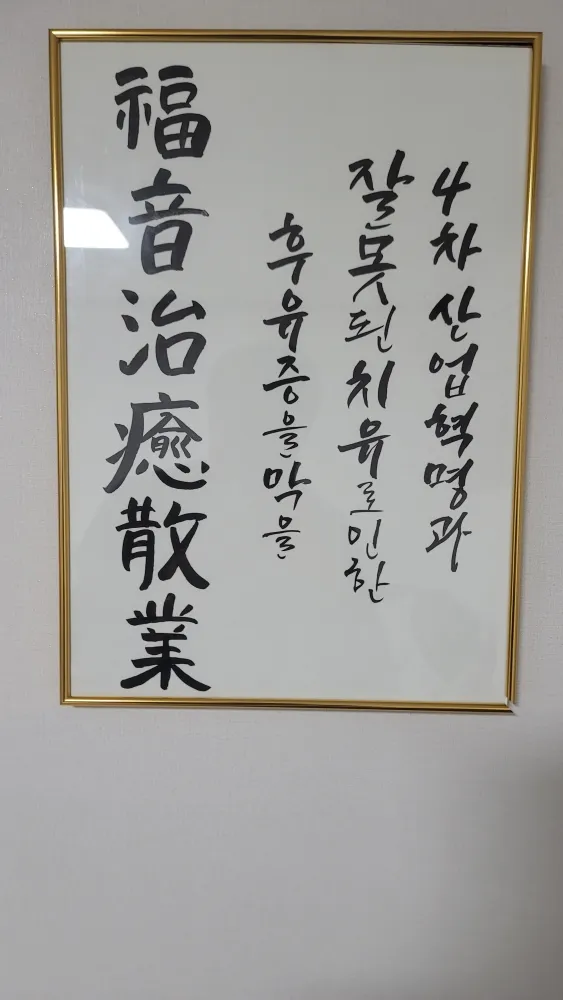 4차산업혁명과
잘못된치유로인한
후유증을막을
福音治癒散業